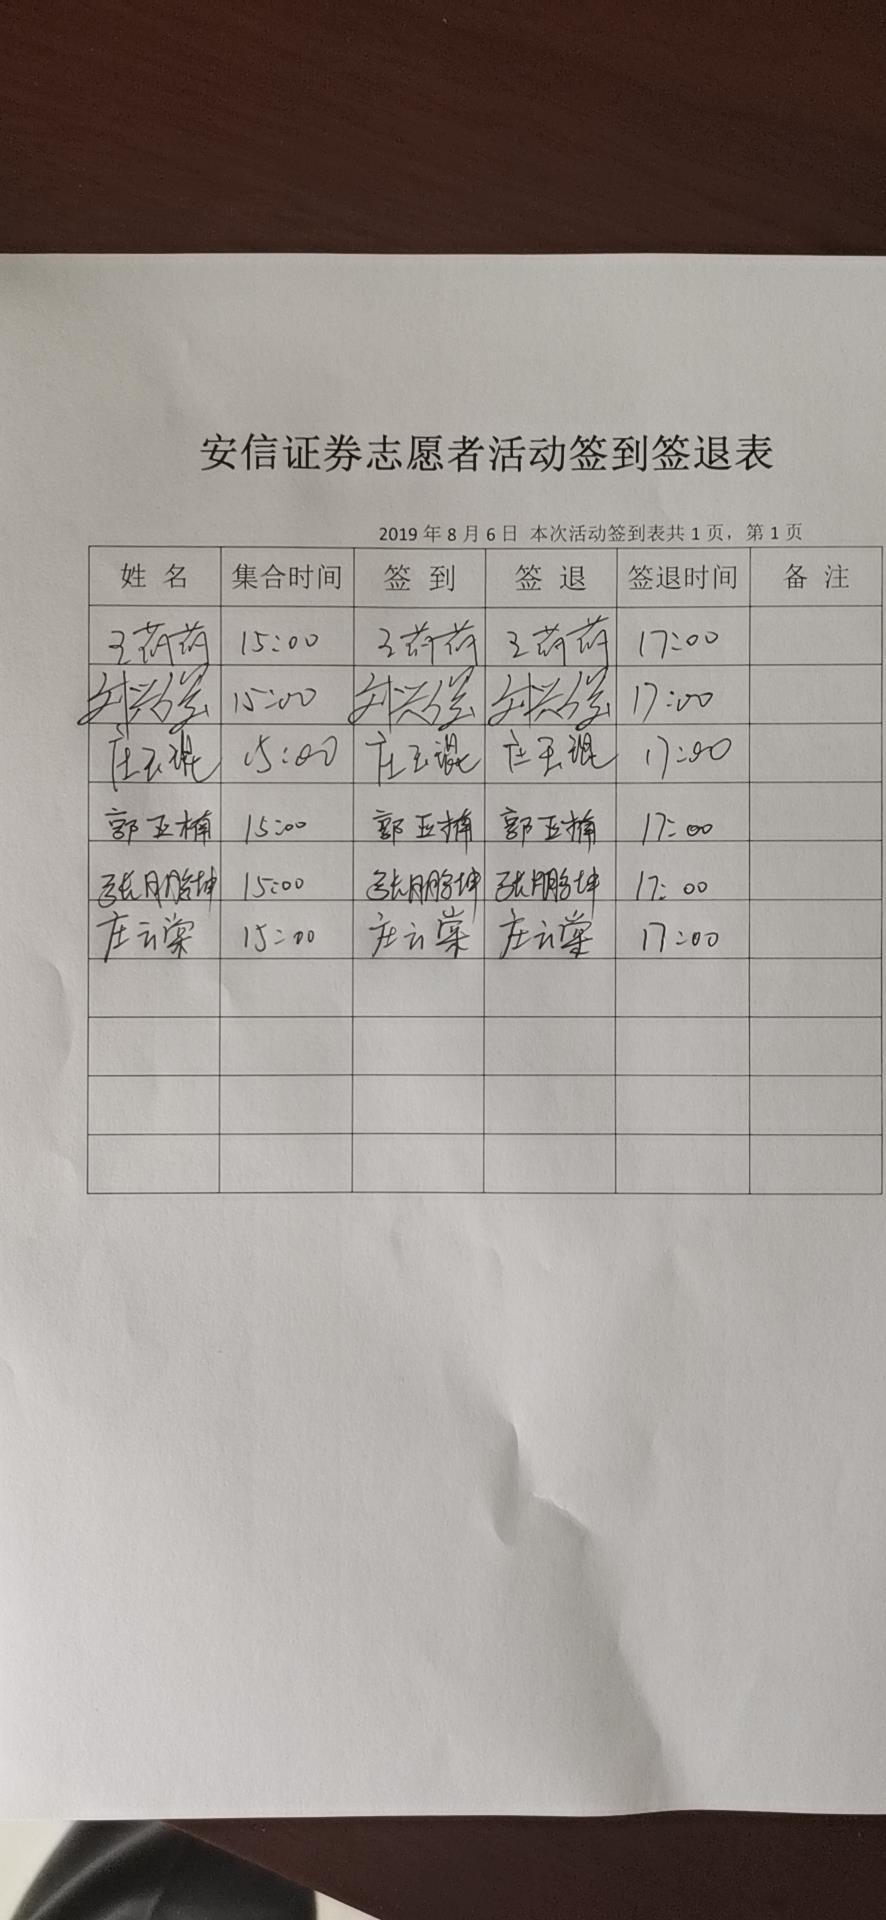 安信证券志愿者活动签到签退表
2019年8月6日 本次活动签到表共1页，第1页
姓 名 集合时间 签 到 签 退 签退时间 备 注
王荷荷 15:00 王荷荷 王荷荷 17:00
刘兴 15:00 刘兴 刘兴 17:00
庄玉琨 15:00 庄玉琨 庄玉琨 17:00
郭亚楠 15:00 郭亚楠 郭亚楠 17:00
张鹏坤 15:00 张鹏坤 张鹏坤 17:00
庄云棠 15:00 庄云棠 庄云棠 17:00